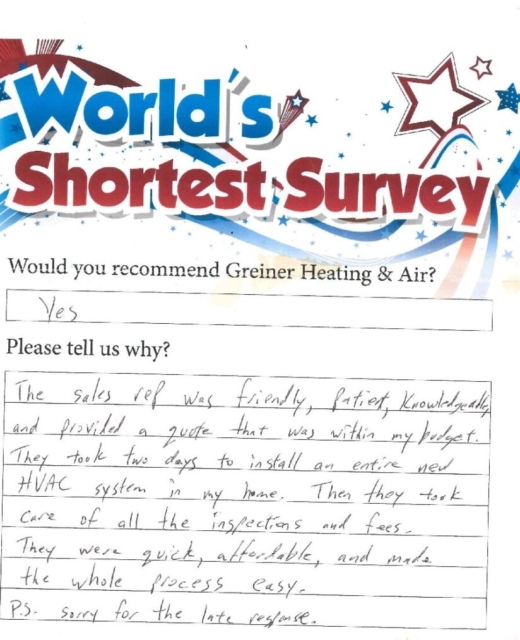 World's
Shortest Survey
Would you recommend Greiner Heating & Air?
Yes
Please tell us why?
The sales rep was friendly, Patient, Knowledgeable,
and provided a quote that was within my budget.
They took two days to install an entire new
HVAC system in my home. Then they took
care of all the inspections and fees.
They were quick, affordable, and made
the whole process easy.
P.S. sorry for the late response.